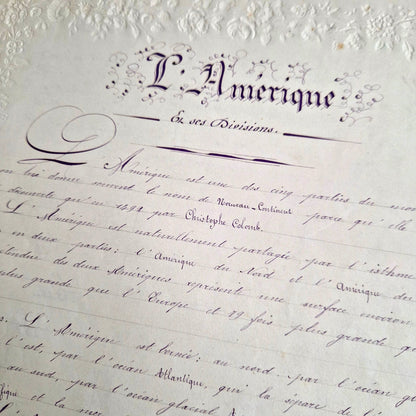 L'Amérique
Et ses Divisions.
L'Amérique est une des cinq parties du mon
on lui donne souvent le nom de Nouveau-Continent parce qu'elle
découverte qu'en 1492 par Christophe Colomb.
L'Amérique est naturellement partagée par l'isthm
en deux parties: l'Amérique du Nord et l'Amérique du
étendue des deux Amériques représente une surface environ
plus grande que l'Europe et 79 fois plus grande q
L'Amérique est bornée: au nord, par l'océan g
l'est, par l'océan Atlantique, qui la sépare de l'
au sud, par l'océan glacial A
fique et la mer